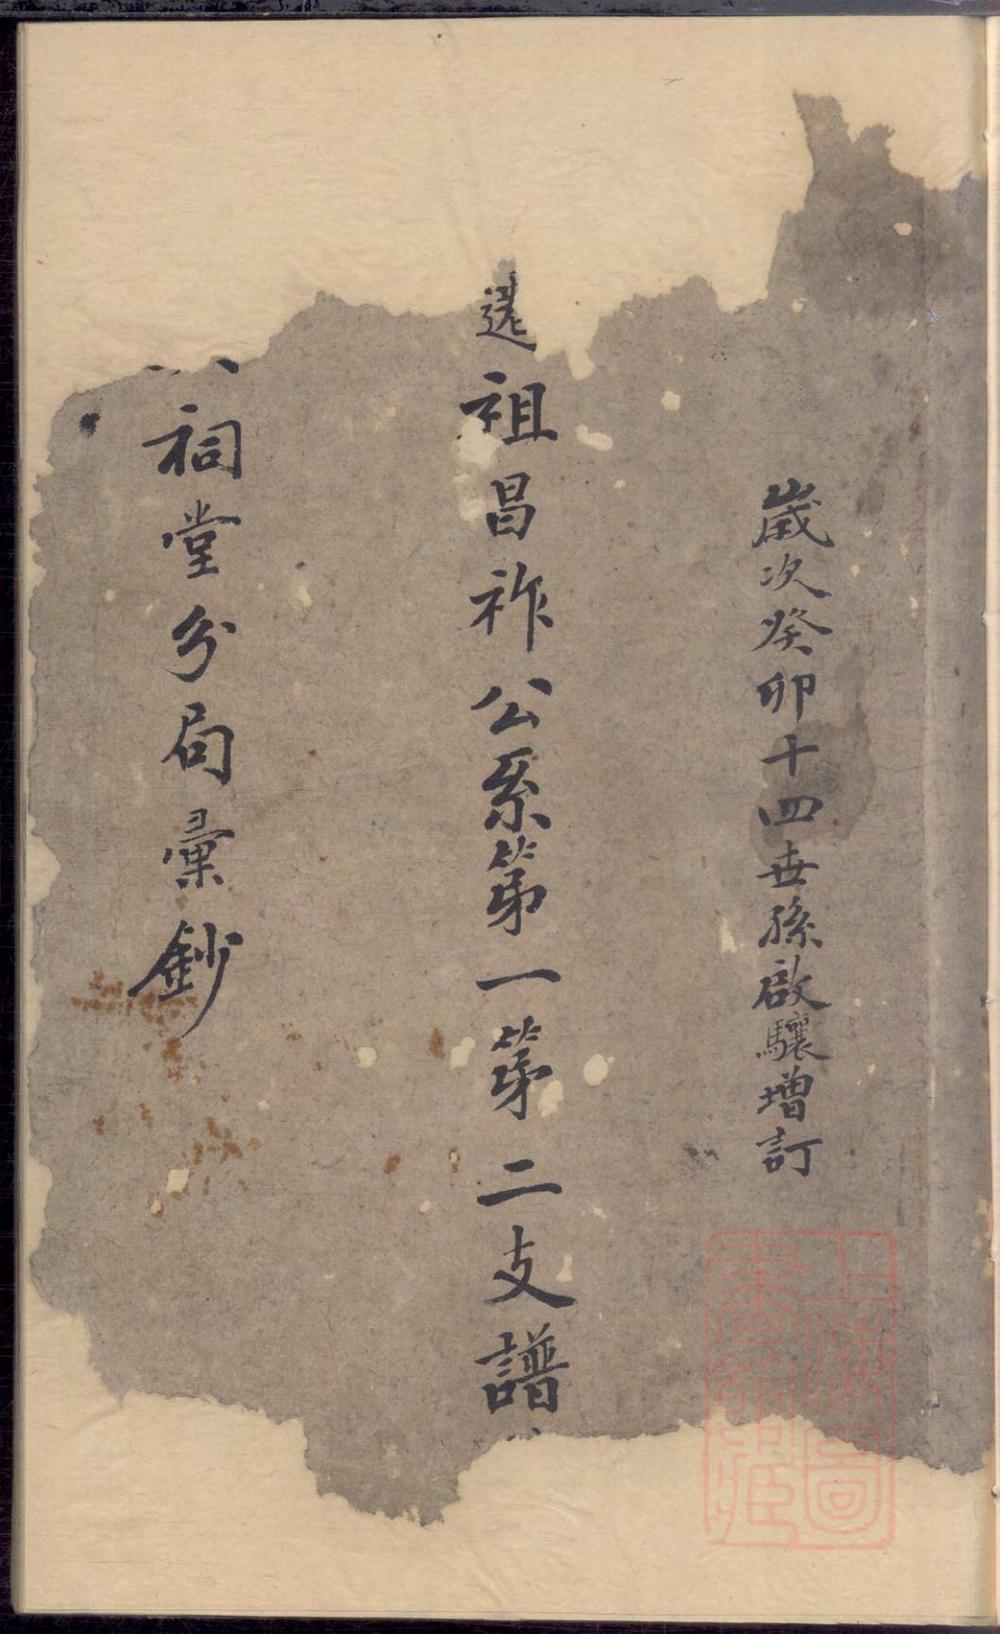 歲次癸卯十四世孫啟驤增訂
祖昌祚公系第一第二支譜
祠堂分局彙鈔
上海圖書館藏